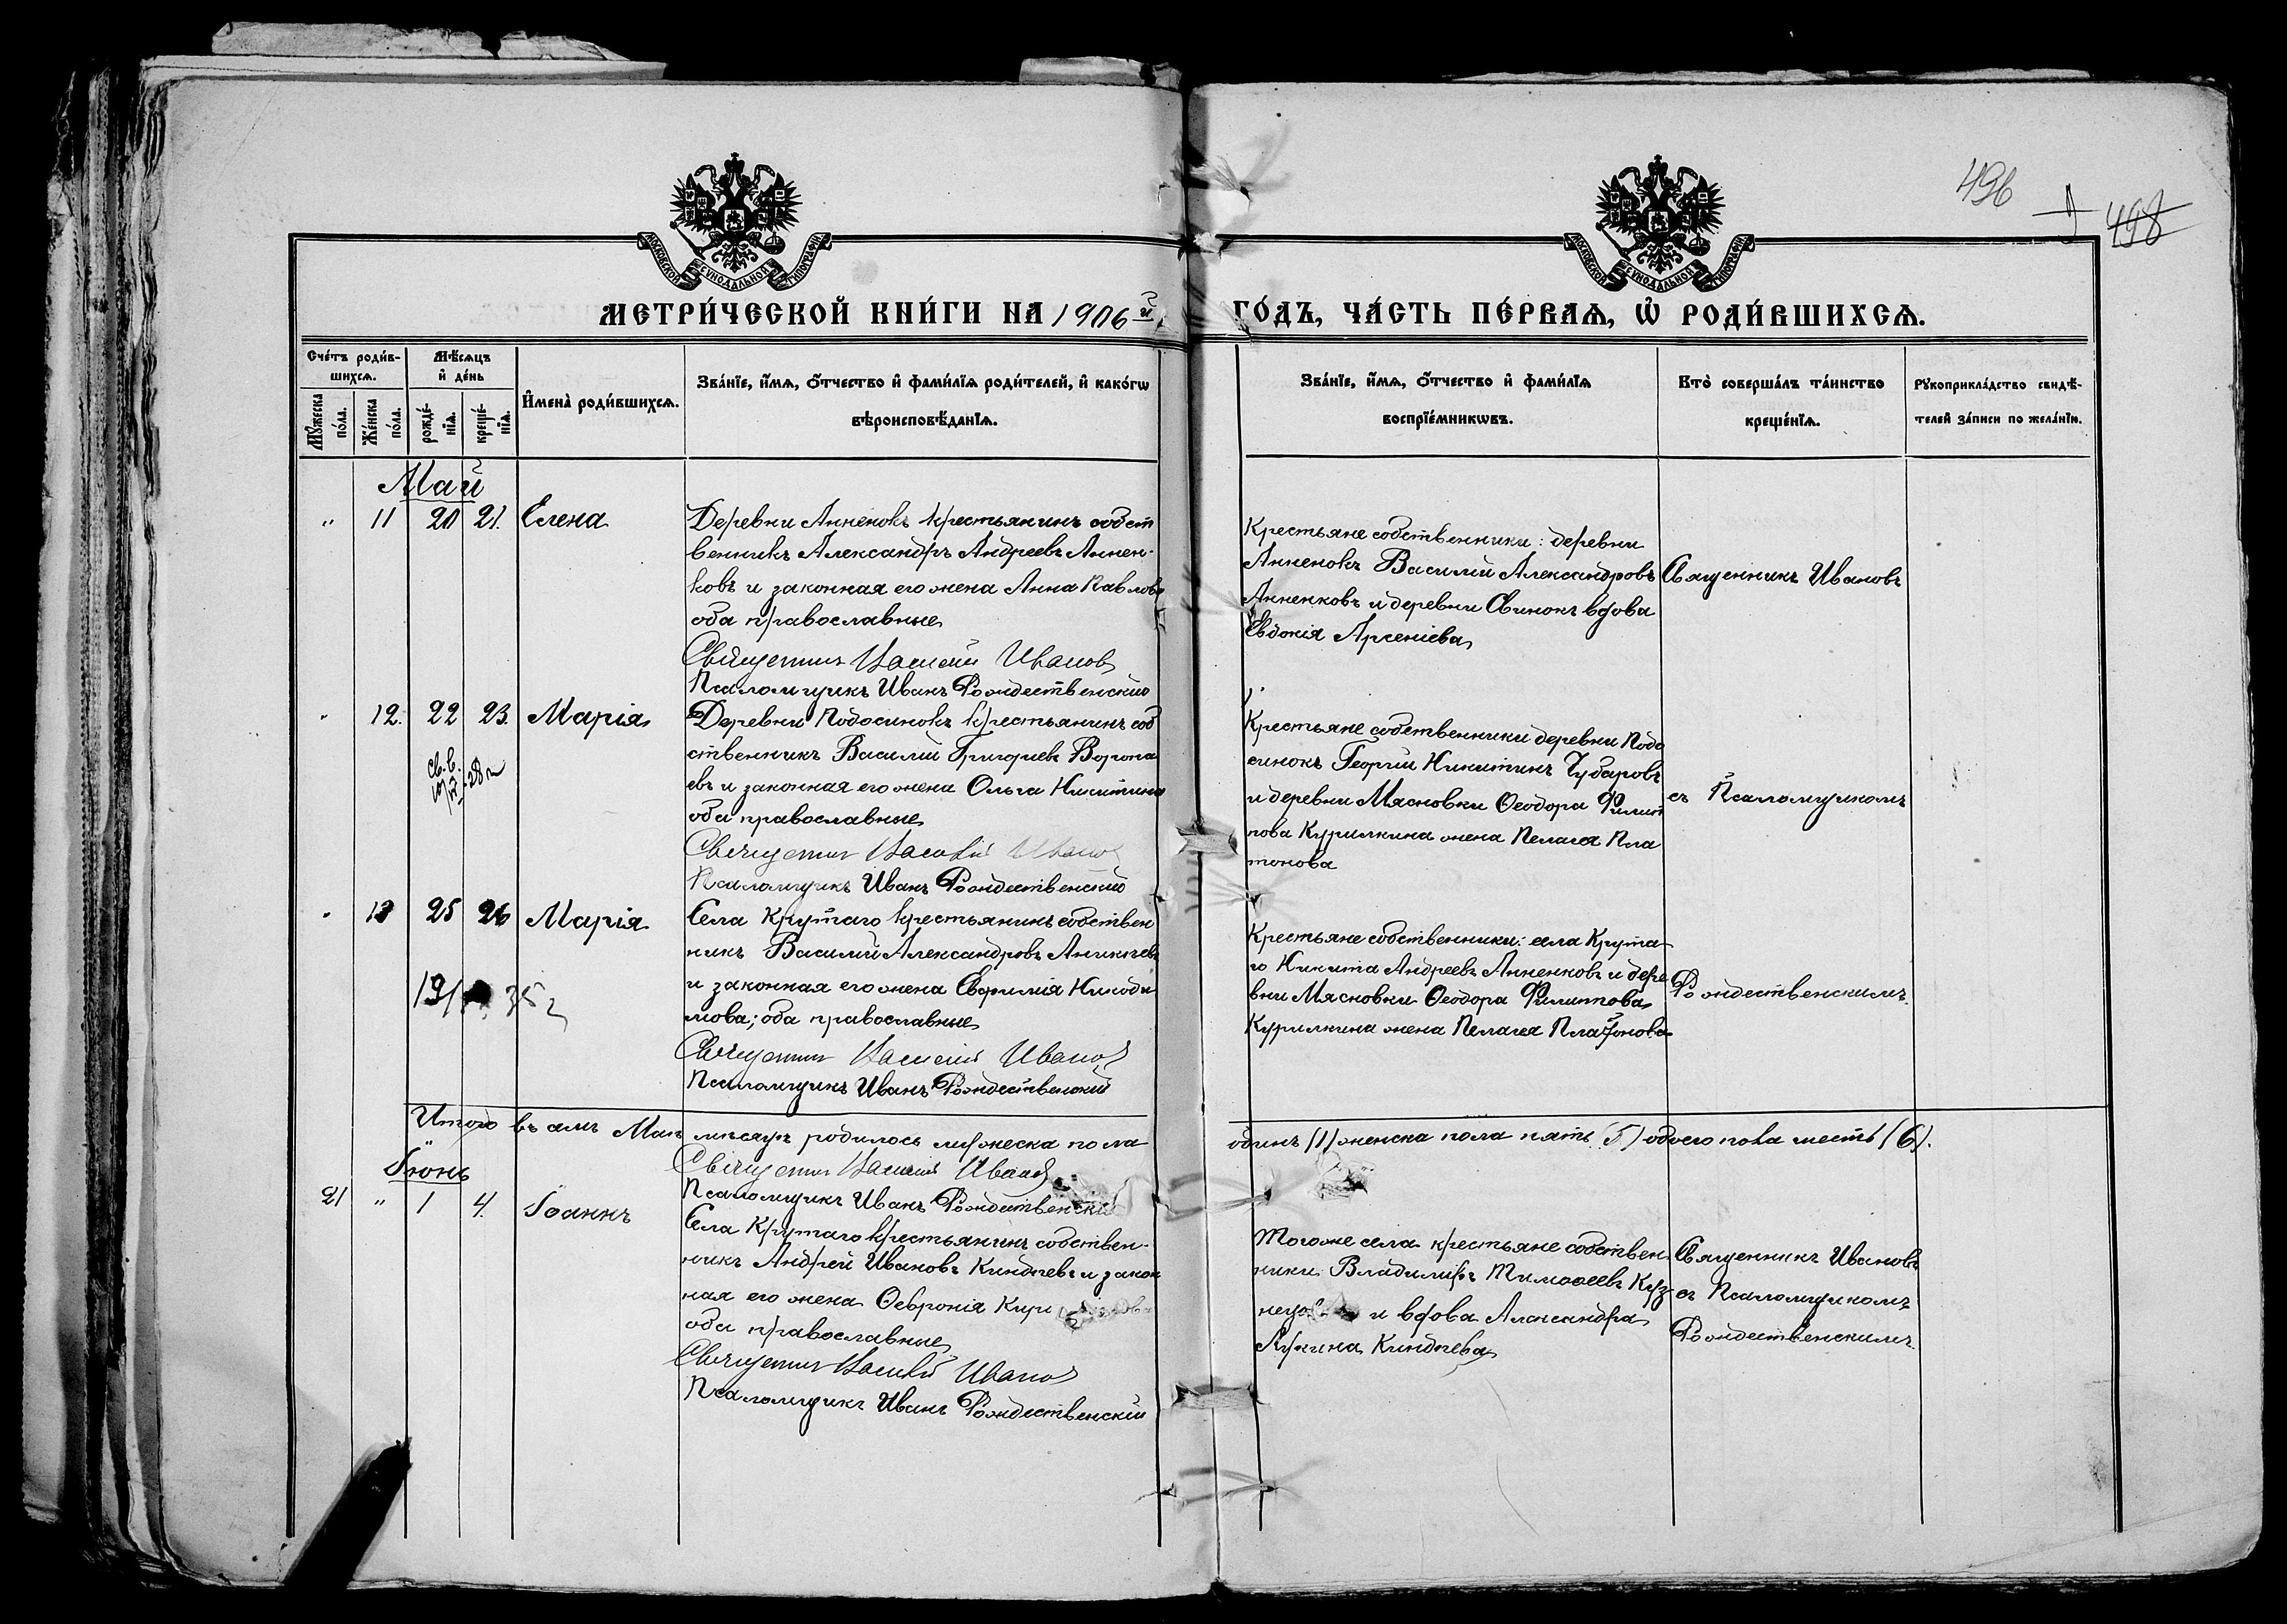 496
498
МОСКОВСКОЙ СѴНОДАЛЬНОЙ ТИПОГРАФІИ
МОСКОВСКОЙ СѴНОДАЛЬНОЙ ТИПОГРАФІИ
МЕТРИ́ЧЕСКОЙ КНИ́ГИ НА 1906 й
ГО́ДЪ, ЧА́СТЬ ПЕ́РВАѦ, Ѡ҆ РОДИ́ВШИХСѦ.
Сче́тъ роди́в-
шихсѧ.
Мꙋ́жеска по́ла.
Же́нска по́ла.
Мѣ́сѧцъ
и҆ де́нь
рожде́-нїѧ.
креще́-нїѧ.
И҆мена̀ роди́вшихсѧ.
Зва́нїе, и҆́мѧ, ѻ҆́тчество и҆ фами́лїѧ роди́телей, и҆ како́гѡ
вѣроисповѣ́данїѧ.
Зва́нїе, и҆́мѧ, ѻ҆́тчество и҆ фами́лїѧ
воспрїе́мникѡвъ.
Кто̀ соверша́лъ та́инство
креще́нїѧ.
Рꙋкоприкла́дство свидѣ́-
телей за́писи по жела́нїю.
Май
" 11 20 21. Елена
Деревни Анненокъ крестьянинъ собст
венникъ Александръ Андреевъ Аннен-
ковъ и законная его жена Анна Павлова
оба православные
Священникъ Василій Ивановъ
Псаломщикъ Иванъ Рождественскій
Крестьяне собственники: деревни
Анненокъ Василій Александровъ
Анненковъ и деревни Свинокъ вдова
Евдокія Арсеніева
Священникъ Ивановъ
" 12. 22 23. Марія
Деревни Подосинокъ крестьянинъ соб
ственникъ Василій Григорьевъ Воропа
евъ и законная его жена Ольга Никитина
оба православные
Священникъ Василій Ивановъ
Псаломщикъ Иванъ Рождественскій
Крестьяне собственники деревни Подо
синокъ Георгій Никитинъ Чубаровъ
и деревни Мясновки Ѳеодора Филип
пова Курилкина жена Пелагея Пла
тонова
съ Псаломщикомъ
" 13 25 26 Марія
35 г
Села Крутаго крестьянинъ собствен
никъ Василій Александровъ Аникѣевъ
и законная его жена Евфимія Никоди
мова; оба православные
Священникъ Василій Ивановъ
Псаломщикъ Иванъ Рождественскій
Крестьяне собственники: села Крута-
го Никита Андреевъ Анненковъ и дере
вни Мясновки Ѳеодора Филиппова
Курилкина жена Пелагея Платонова
Рождественскимъ.
Итого въ семъ Маѣ мѣсяцѣ родилось мужеска пола
одинъ (1) женска пола пять (5) обоего пола шесть (6).
Священникъ Василій Ивановъ
Псаломщикъ Иванъ Рождественскій
Іюнь
21 " 1 4. Іоаннъ
Села Крутаго крестьянинъ собствен-
никъ Андрей Ивановъ Киндѣевъ и закон
ная его жена Ѳевронія
оба православные
Священникъ Василій Ивановъ
Псаломщикъ Иванъ Рождественскій
Тогоже села крестьяне собствен
ники Владимиръ Тимоѳеевъ Куз-
и вдова Александра
Лукина Киндѣева
Священникъ Ивановъ
съ Псаломщикомъ
Рождественскимъ.